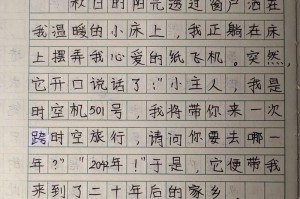 秋日的阳光透过窗户洒在
我温暖的小床上，我正躺在床
上摆弄我心爱的纸飞机。突然，
它开口说话了："小主人，我是
时空机501号，我将带你来一次
跨时空旅行，请问你要去哪一
年？""2042年！"于是，它便带我
来到了二十年后的家乡。